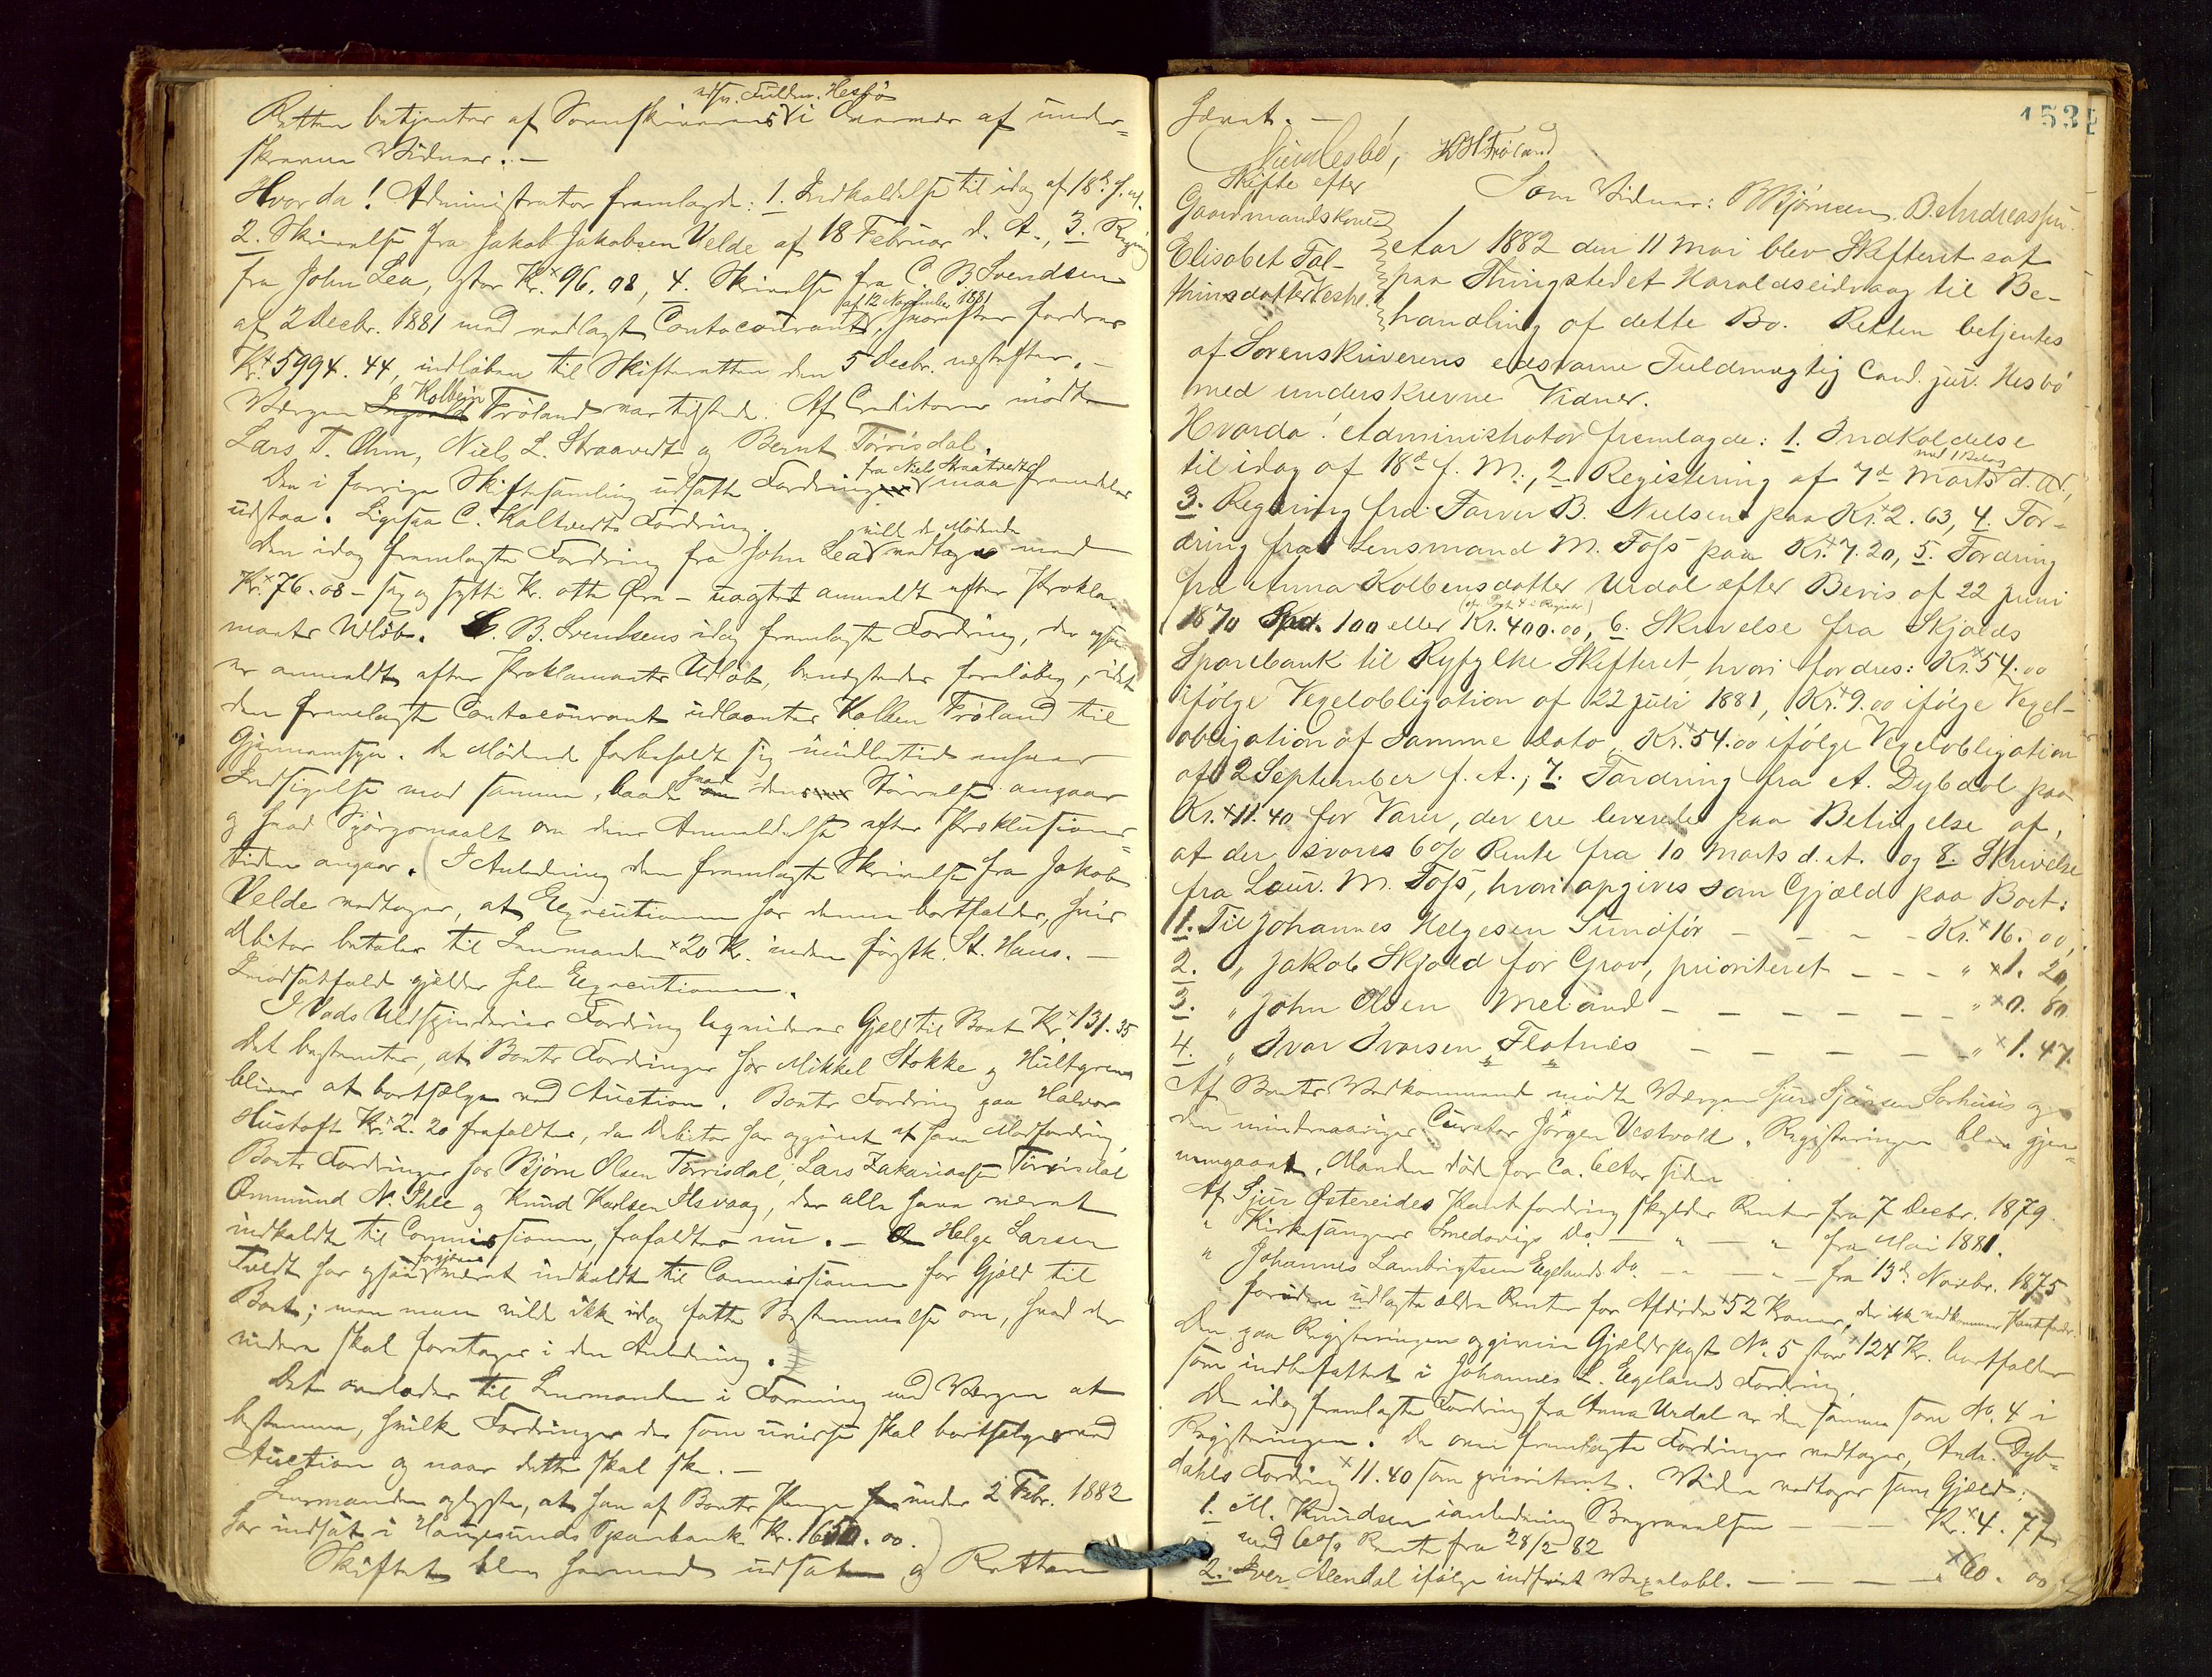 Retten betjentes af Sorenskriverens edsv. Fuldm. Hesbö i Overvær af under-
skrevne Vidner. —
Hvorda! Administrator fremlagde: 1. Indkaldelse til idag af 18de f. M.
2. Skrivelse fra Jakob Jakobsen Velde af 18 Februar d. A., 3. Regning
fra John Lea, stor Kr. 96.08, 4. Skrivelse fra C. B. Svendsen
af 2 Decbr. 1881 med vedlagt Contocourant af 12 November 1881, hvorefter fordres
Kr. 5994.44, indløben til Skifteretten den 5 Decbr. næstefter. —
Værgen Kolben Fröland var tilstede. Af Creditorer mödte
Lars T. Ohm, Niels L. Straatvedt og Bernt Törrisdal.
Den i forrige Skiftesamling udsatte Fordring fra Niels Straatvedt maa fremdeles
udstaa. Ligesaa C. Kaltvedts Fordring.
Den idag fremlagte Fordring fra John Lea vilde de Mødende vedtage med
Kr. 76.08 – sex og sytti Kr. otte Øre – uagtet anmeldt efter Prokla-
maets Udløb. C. B. Svendsens idag fremlagte Fordring, der ogsaa
er anmeldt efter Proklamaets Udløb, benegtedes foreløbig, idet
den fremlagte Contocourant udlaantes Kolben Fröland til
Gjennemsyn. De Mödende forbeholdt sig imidlertid enhver
Indsigelse mod samme, baade hvad dens Størrelse angaar
og hvad Spørgsmaalet om dens Anmeldelse efter Præklusions-
tiden angaar. I Anledning den fremlagte Skrivelse fra Jakob
Velde vedtages, at Executionen hos denne bortfalder, hvis
Debitor betaler til Lensmanden 20 Kr. inden førstk. St. Hans. —
I modsat fald gjelder hele Executionen.
I Vads Uldspinderies Fordring liquideres Gjeld til Boet Kr. 131.35
Det bestemtes, at Boets Fordringer hos Mikkel Stokke og Hultgren
bliver at bortsælge ved Auction. Boets Fordring paa Halvor
Hustoft Kr. 2.20 frafaldtes, da Debitor har opgivet at have Modfordring.
Boets Fordringer hos Bjørn Olsen Törrisdal, Lars Zakariassen Törrisdal
Ommund N. Ihle og Knud Karlsen Ilsvaag, der alle have været
indkaldt til Commissionen, frafaldtes nu. — Helge Larsen
Tvedt har ogsaa forgjæves været indkaldt til Commissionen for Gjæld til
Boet; men man vilde ikke idag fatte Bestemmelse om, hvad der
videre skal foretages i den Anledning.
Det overlades til Lensmanden i Forening med Værgen at
bestemme, hvilke Fordringer der som uvisse skal bortsælges ved
Auction og naar dette skal ske. —
Lensmanden oplyste, at han af Boets Penge under 2 Febr. 1882
har indsat i Haugesunds Sparebank Kr. 1650.00.
Skiftet blev hermed udsat og Retten
153
hævet. —
Hesbö, K. Fröland
Som Vidner: B Bjørnsen. D. Andreassen.
Skifte efter
Gaardmandskone
Elisabet Tal-
Aar 1882 den 11 Mai blev Skifteret sat
paa Thingstedet Haraldseidvaag til Be-
handling af dette Bo. Retten betjentes
af Sorenskriverens edsvorne Fuldmægtig Cand. jur. Hesbö
med underskrevne Vidner.
Hvorda! Administrator fremlagde: 1. Indkaldelse
til idag af 18de f. M., 2. Registering af 7de Marts d. A. med 1 Bilag,
3. Regning fra Farver B. Nielsen paa Kr. 2.63, 4. For-
dring fra Lensmand M. Foss paa Kr. 7.20, 5. Fordring
fra Anna Kolbensdatter Urdal efter Bevis af 22 Juni
1870 Spd. 100 eller Kr. 400.00, (cfr. Post 4 i Registr.) 6. Skrivelse fra Skjolds
Sparebank til Ryfylke Skifteret, hvori fordres: Kr. 54.00
ifølge Vexelobligation af 22 Juli 1881, Kr. 9.00 ifølge Vexel-
obligation af samme Dato, Kr. 54.00 ifølge Vexelobligation
af 2 September f. A., 7. Fordring fra A. Dybdal paa
Kr. 11.40 for Varer, der ere leverede paa Betingelse af,
at der svares 6 % Rente fra 10 Marts d. A. og 8. Skrivelse
fra Laur. M. Foss, hvori opgives som Gjæld paa Boet:
1. Til Johannes Helgesen Sundför — — — — Kr. 16.00,
2. „ Jakob Skjold for Grav, prioriteret — — — „ 1.20,
3. „ John Olsen Meland — — — — — „ 0.80
4. „ Ivar Ivarsen Flotnes — — — — — „ 1.47.
Af Boets Vedkommende mødte Værgen Sjur Sjursen Sørhuus og
den mindreaariges Curator Jörgen Vestvold. Registeringen blev gjen-
nemgaaet. Manden død for ca. 6 Aar siden
Af Sjur Østereides Pantefordring skyldes Renter fra 7 Decbr. 1879.
„ Kirkesanger Smedsvigs Do. — „ — „ fra Mai 1881.
„ Johannes Lambrigtsen Eegelands Do. — „ — „ — fra 13de Novbr. 1875
foruden udlagte ældre Renter for Afdøde 52 Kroner, der ikke vedkommer Pantefordr.
Den paa Registeringen opgivne Gjældspost No. 5 stor 124 Kr. bortfalder
som indbefattet i Johannes L. Eegelands Fordring.
Den idag fremlagte Fordring fra Anna Urdal er den samme som No. 4 i
Registeringen. De oven fremlagte Fordringer vedtages, Andr. Dyb-
dahls Fordring 11.40 som prioriteret. Videre vedtages som Gjæld:
1. M. Knudsen i anledning Begravelsen — — — Kr. 4.77
med 6 % Rente fra 28/2 82
2. Iver Alendal ifølge indfriet Vexelobl. — — — — „ 60.00